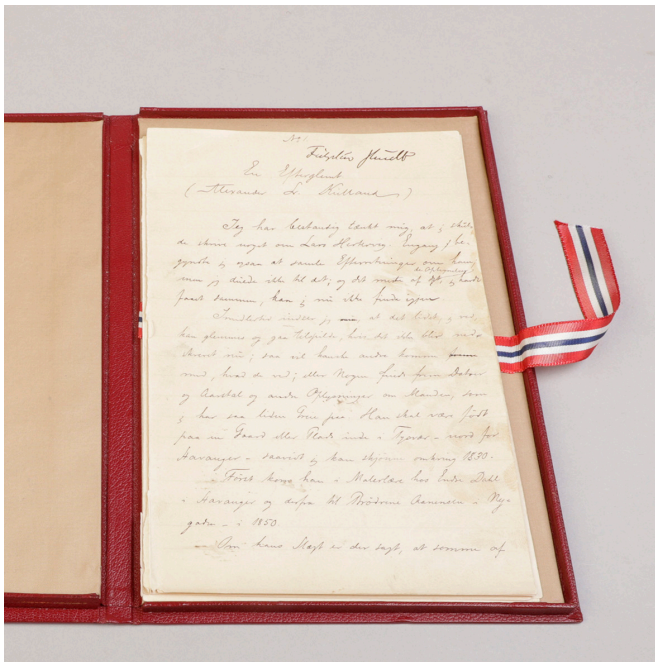 No 1
En Efterglemt
(Alexander L. Kielland)
Jeg har bestandig tænkt mig, at j skul-
de skrive noget om Lars Hertervig. Engang j be-
gyndte j ogsaa at samle Efterretninger om ham,
men j duede ikke til det; og det meste af
de Oplysning
faaet sammen, kan j nu ikke finde igjen
Imidlertid at det lidt, j ved,
kan glemmes og gaa tilspilde, hvis det ikke blir ned-
skrevet nu; saa vil kanske andre komme
med, hvad de ved; eller Nogen finde Datoer
og Aarstal og andre Oplysninger om Manden, som
j har saa liden Greie paa. Han skal være født
paa en Gaard eller Plads inde i Tysvær – nord for
Stavanger – saavidt j kan skjønne omkring 1830.
Først kom han i Malerlære hos Dahl
i Stavanger og derfra til Brødrene Aanensen i Ny-
gaden – i 1850.
Om hans Slægt er der sagt, at somme af